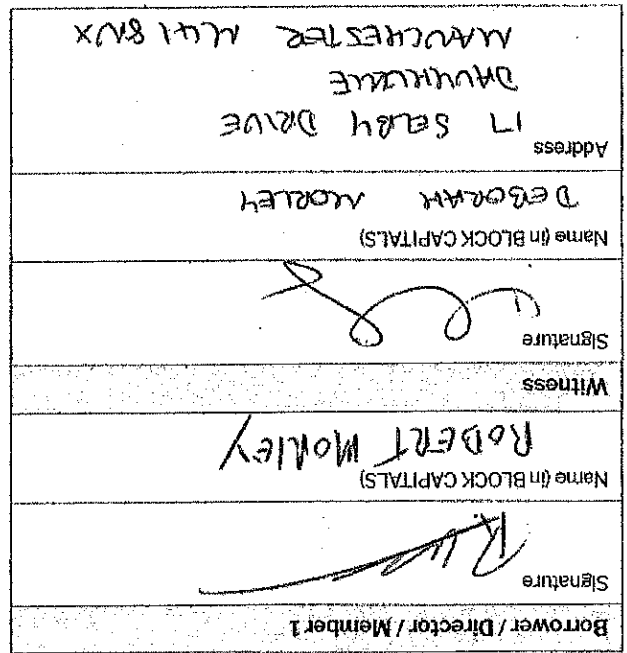 Borrower / Director / Member 1
Signature
Name (in BLOCK CAPITALS)
ROBERT MORLEY
Witness
Signature
Name (in BLOCK CAPITALS)
DEBORAH MORLEY
Address
17 SELBY DRIVE
DAVYHULME
MANCHESTER M41 8NX